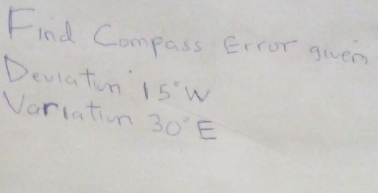 Find Compass Error given
Deviatiun 15°W
Variatiun 30°E